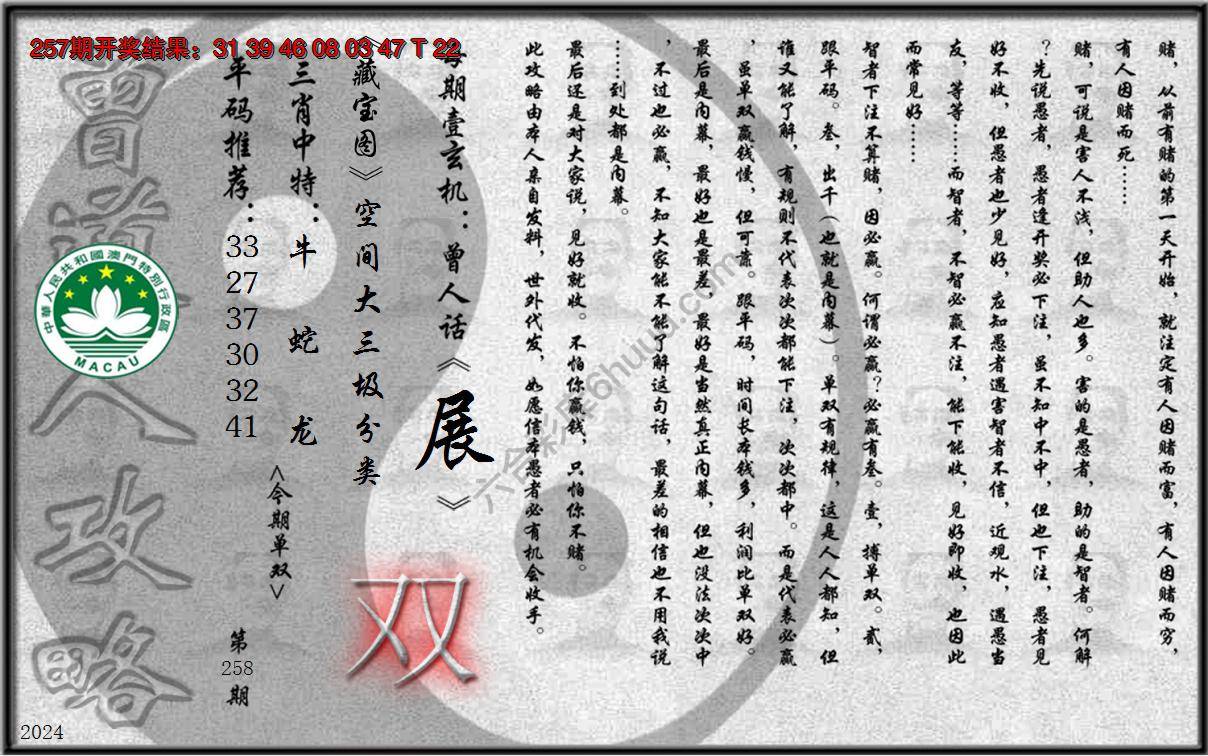 257期开奖结果：31 39 46 08 03 47 T 22
赌，从前有赌的第一天开始，就注定有人因赌而富，有人因赌而穷，
有人因赌而死……
赌，可说是害人不浅，但助人也多。害的是愚者，助的是智者。何解
？先说愚者，愚者逢开奖必下注，虽不知中不中，但也下注，愚者见
好不收，但愚者也少见好，应知愚者遇害智者不信，近观水，遇愚当
友，等等……而智者，不智必赢不注，能下能收，见好即收，也因此
而常见好……
智者下注不算赌，因必赢。何谓必赢？必赢有叁。壹，搏单双。贰，
跟平码。叁，出千（也就是内幕）。单双有规律，这是人人都知，但
谁又能了解，有规则不代表次次都能下注，次次都中。而是代表必赢
，虽单双赢钱慢，但可靠。跟平码，时间长本钱多，利润比单双好。
最后是内幕，最好也是最差，最好是当然真正内幕，但也没法次次中
，不过也必赢，不知大家能不能了解这句话，最差的相信也不用我说
……到处都是内幕。
最后还是对大家说，见好就收。不怕你赢钱，只怕你不赌。
此攻略由本人亲自发料，世外代发，如愿信本愚者必有机会收手。
每期壹玄机：曾人话《展》
《藏宝图》空间大三圾分类
三肖中特：牛 蛇 龙
<今期单双>
双
平码推荐：
33
27
37
30
32
41
第
258
期
曾道人攻略
中華人民共和國澳門特別行政區
MACAU
六合彩库6huuu.com
2024